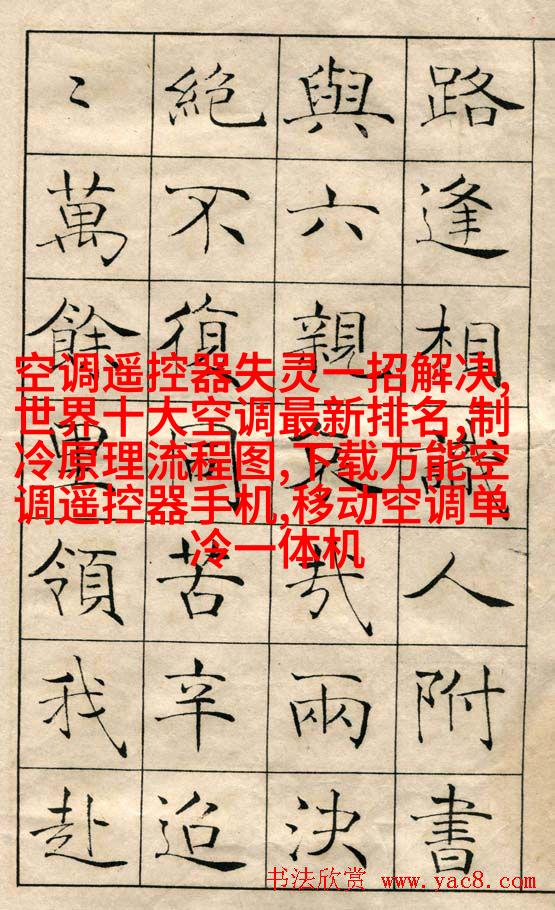 路逢相識人附書
與六親哀哉兩決
絕不復同苦辛迢
〻萬餘里領我赴
空调遥控器失灵一招解决,
世界十大空调最新排名,制
冷原理流程图,下载万能空
调遥控器手机,移动空调单
冷一体机
书法欣赏 www.yac8.com